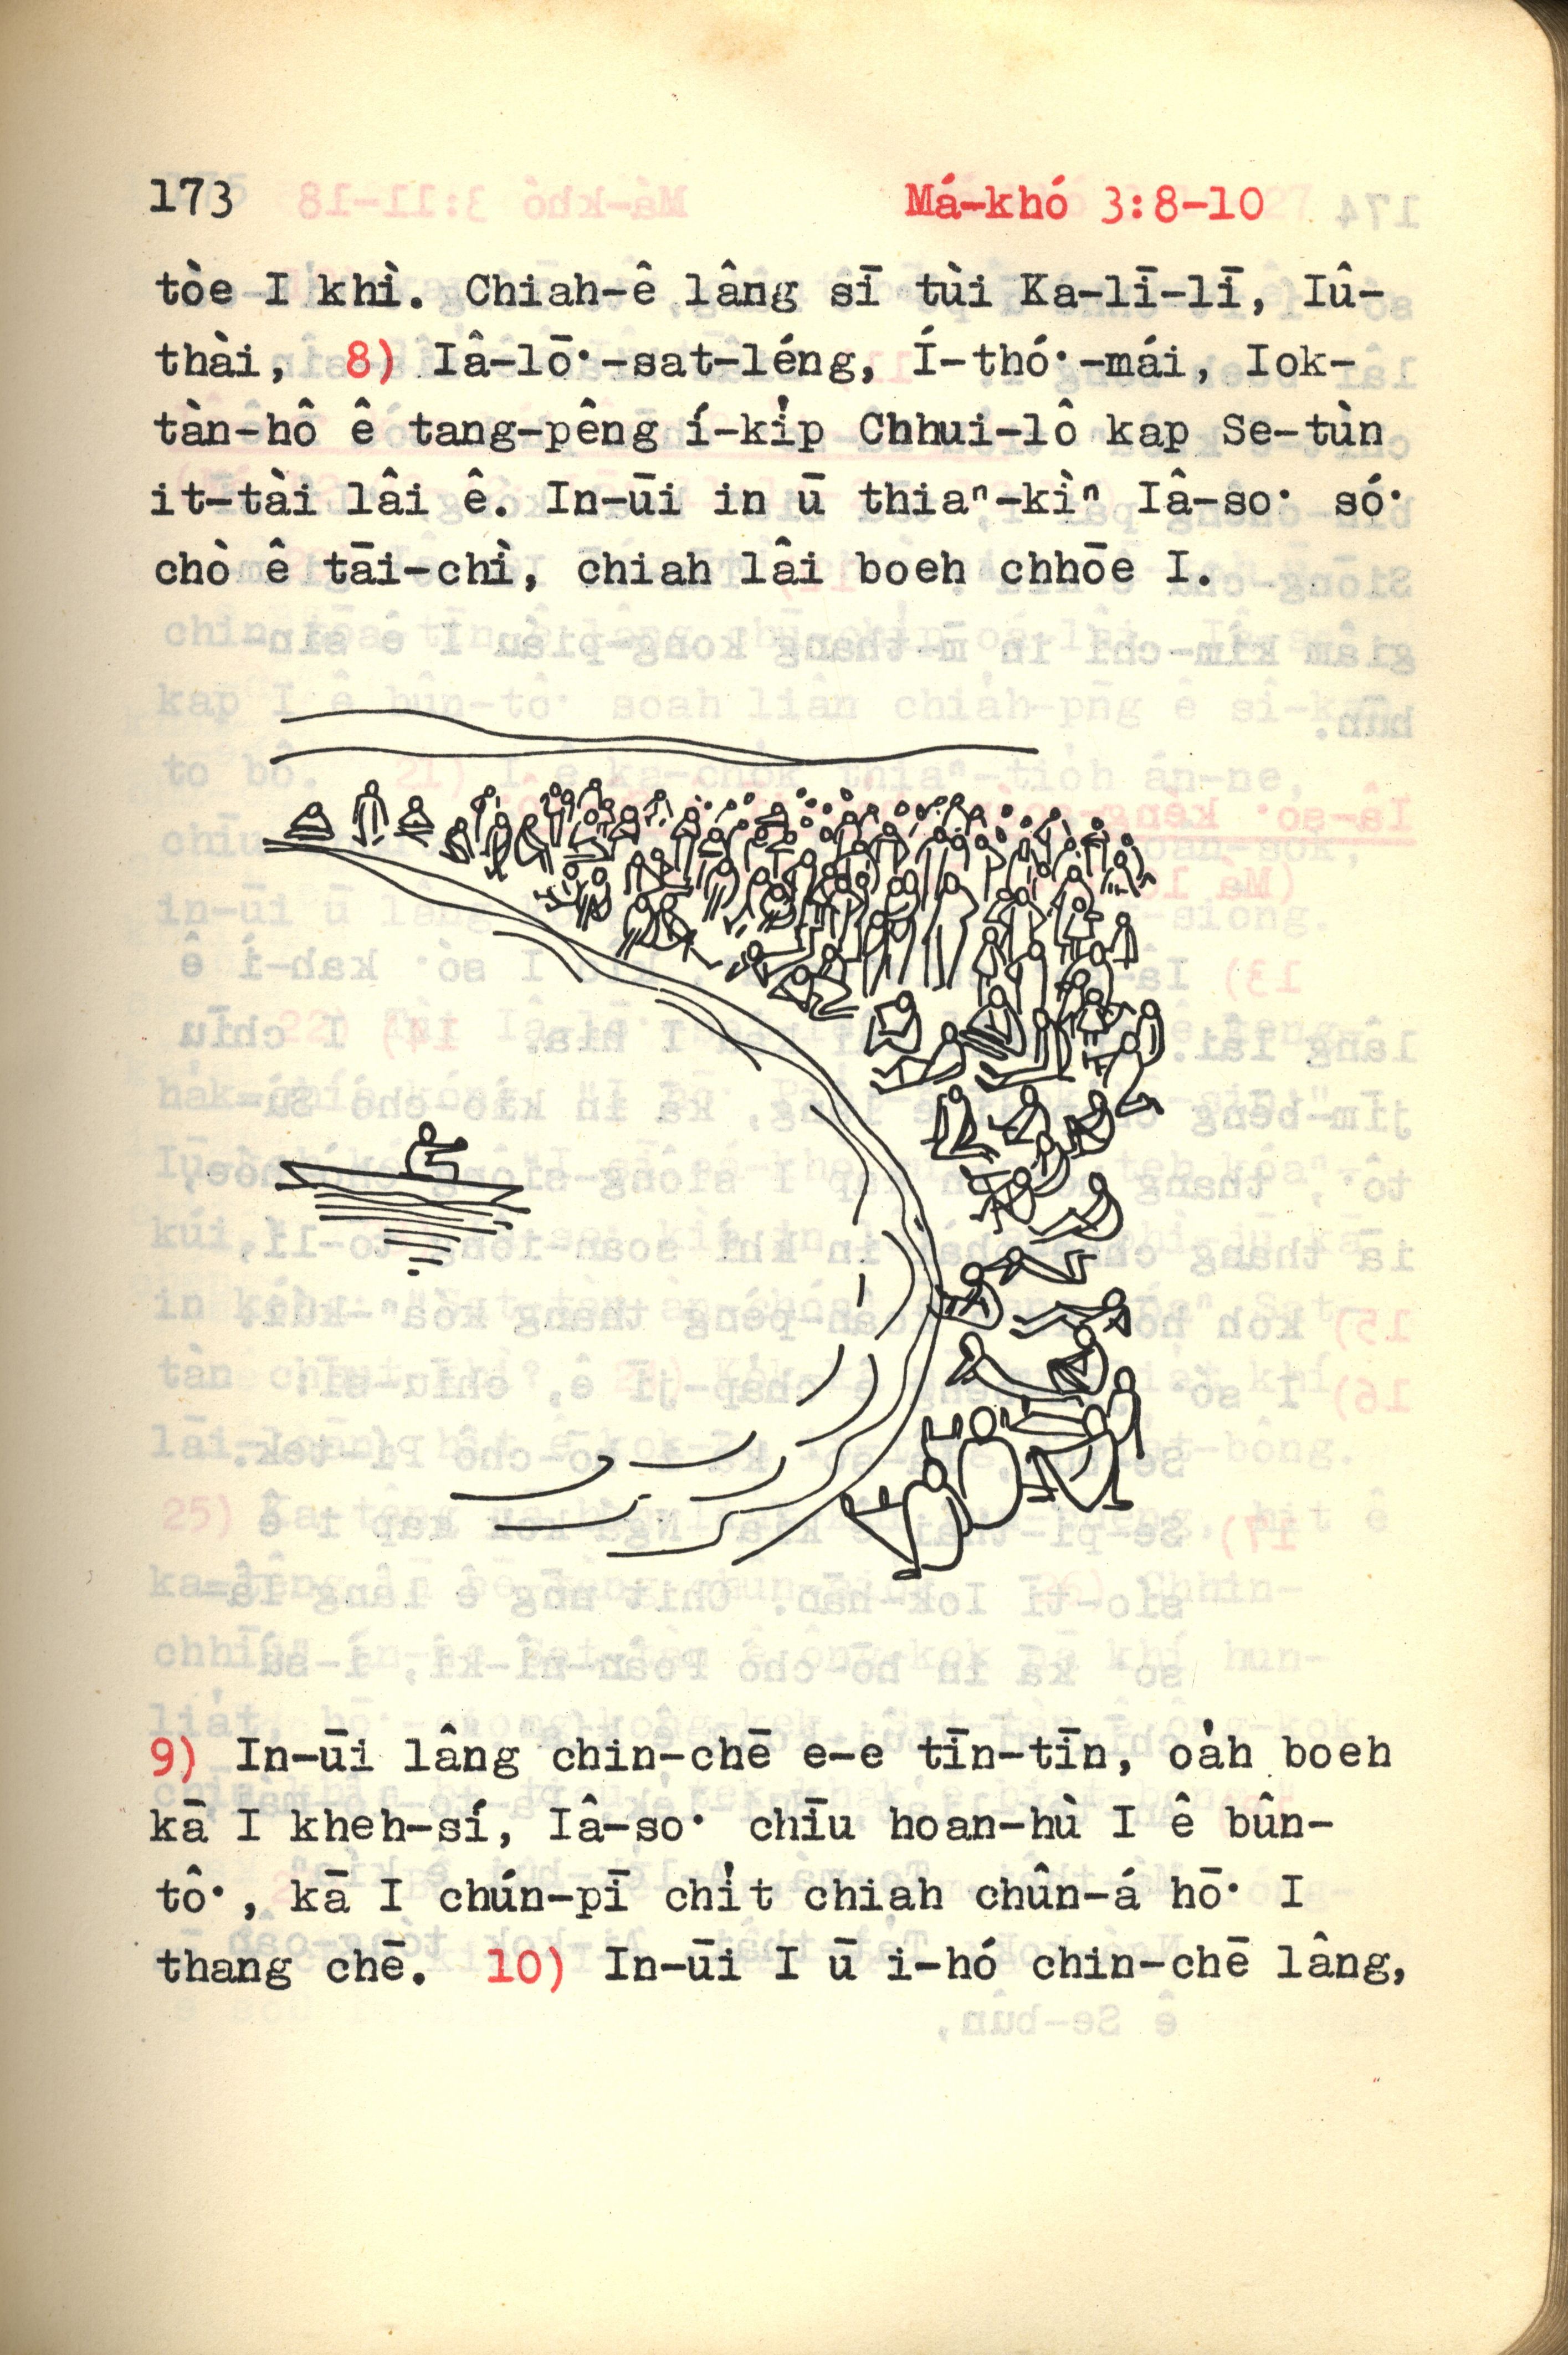 173 Má-khó 3:8-10
tòe I khì. Chiah-ê lâng sī tùi Ka-lī-lī, Iû-
thài, 8) Iâ-lō͘-sat-léng, Í-thó͘-mái, Iok-
tàn-hô ê tang-pêng í-ki̍p Chhui-lô kap Se-tùn
it-tài lâi ê. In-ūi in ū thiaⁿ-kìⁿ Iâ-so͘ só͘
chò ê tāi-chì, chiah lâi boeh chhōe I.
9) In-ūi lâng chin-chē e-e tīn-tīn, oa̍h boeh
kā I kheh-sí, Iâ-so͘ chīu hoan-hù I ê bûn-
tô͘, kā I chún-pī chi̍t chiah chûn-á hō͘ I
thang chē. 10) In-ūi I ū i-hó chin-chē lâng,